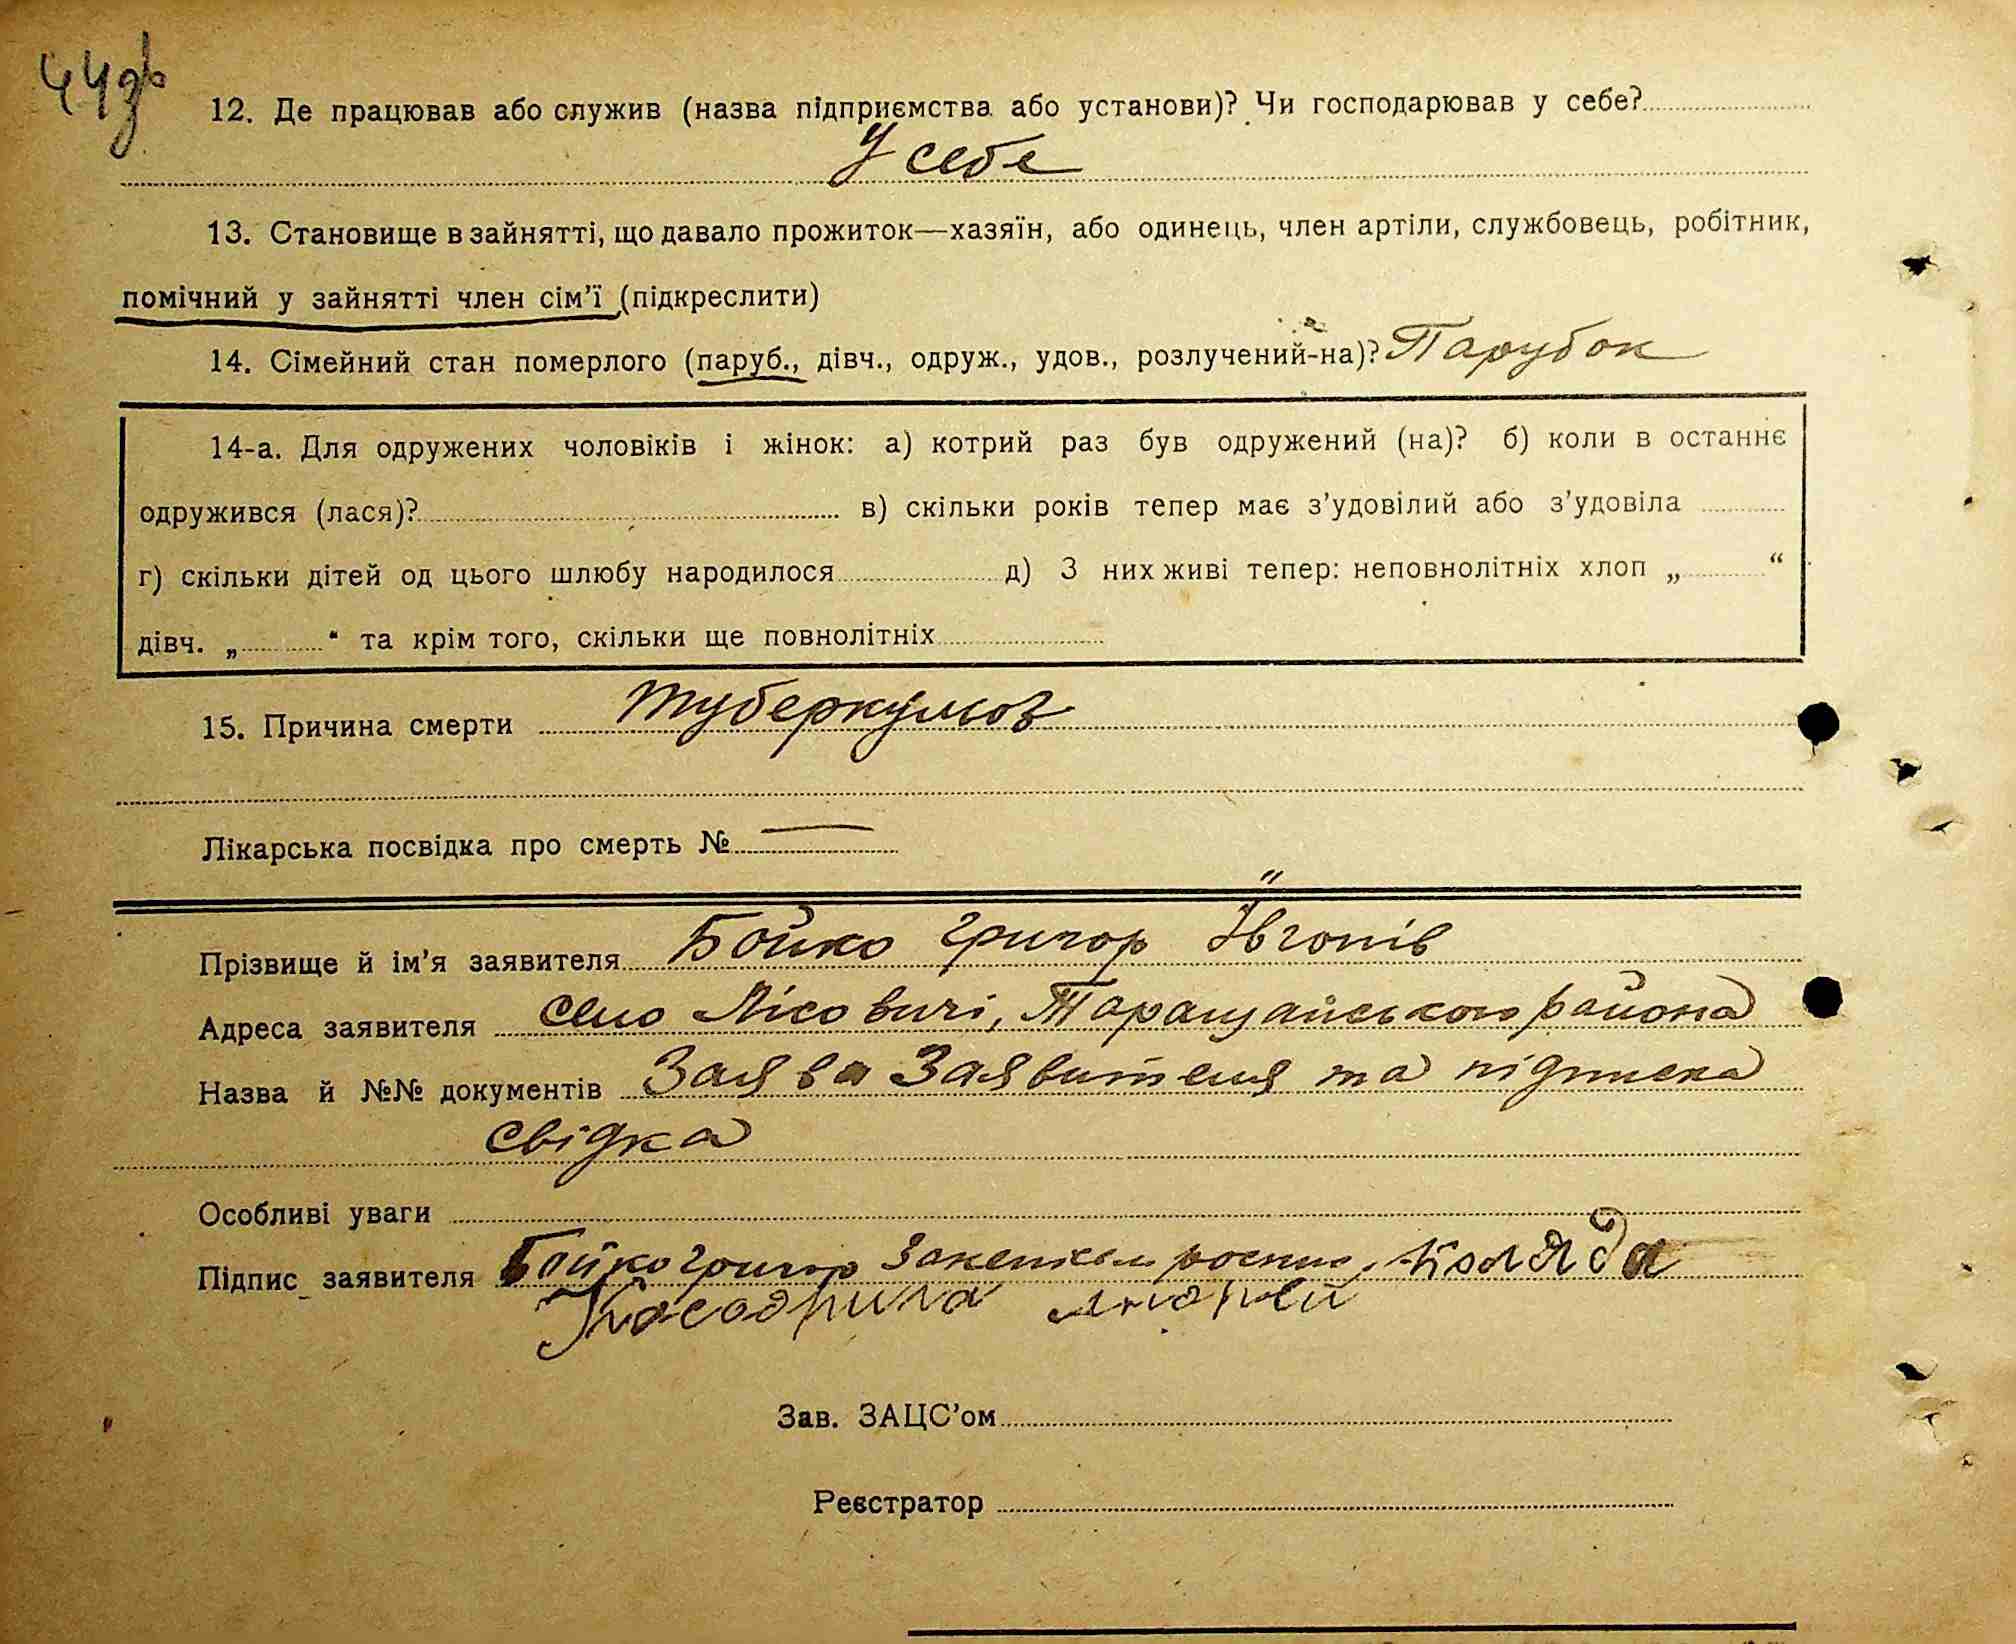 44зв
12. Де працював або служив (назва підприємства або установи)? Чи господарював у себе?
У себе
13. Становище в зайнятті, що давало прожиток—хазяїн, або одинець, член артіли, службовець, робітник,
помічний у зайнятті член сім’ї (підкреслити)
14. Сімейний стан померлого (паруб., дівч., одруж., удов., розлучений-на)? Парубок
14-а. Для одружених чоловіків і жінок: а) котрий раз був одружений (на)? б) коли в останнє
одружився (лася)? в) скільки років тепер має з’удовілий або з’удовіла
г) скільки дітей од цього шлюбу народилося д) З них живі тепер: неповнолітніх хлоп „ “
дівч. „ “ та крім того, скільки ще повнолітніх
15. Причина смерти Туберкульоз
Лікарська посвідка про смерть № —
Прізвище й ім’я заявителя Бойко Григор
Адреса заявителя село Лісовичі, Таращанського района
Назва й №№ документів Заява Заявителя та підписка
свідка
Особливі уваги
Підпис заявителя Бойко Григор Коляда
Зав. ЗАЦС’ом
Реєстратор